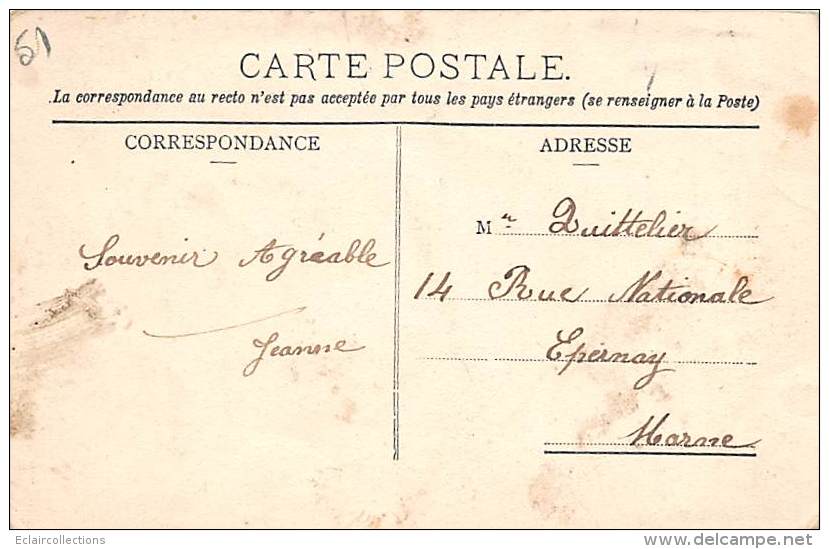 51
CARTE POSTALE.
La correspondance au recto n'est pas acceptée par tous les pays étrangers (se renseigner à la Poste)
CORRESPONDANCE
ADRESSE
Souvenir Agréable
Jeanne
Mlle Quittelier
14 Rue Nationale
Epernay
Marne
Eclaircollections
www.delcampe.net